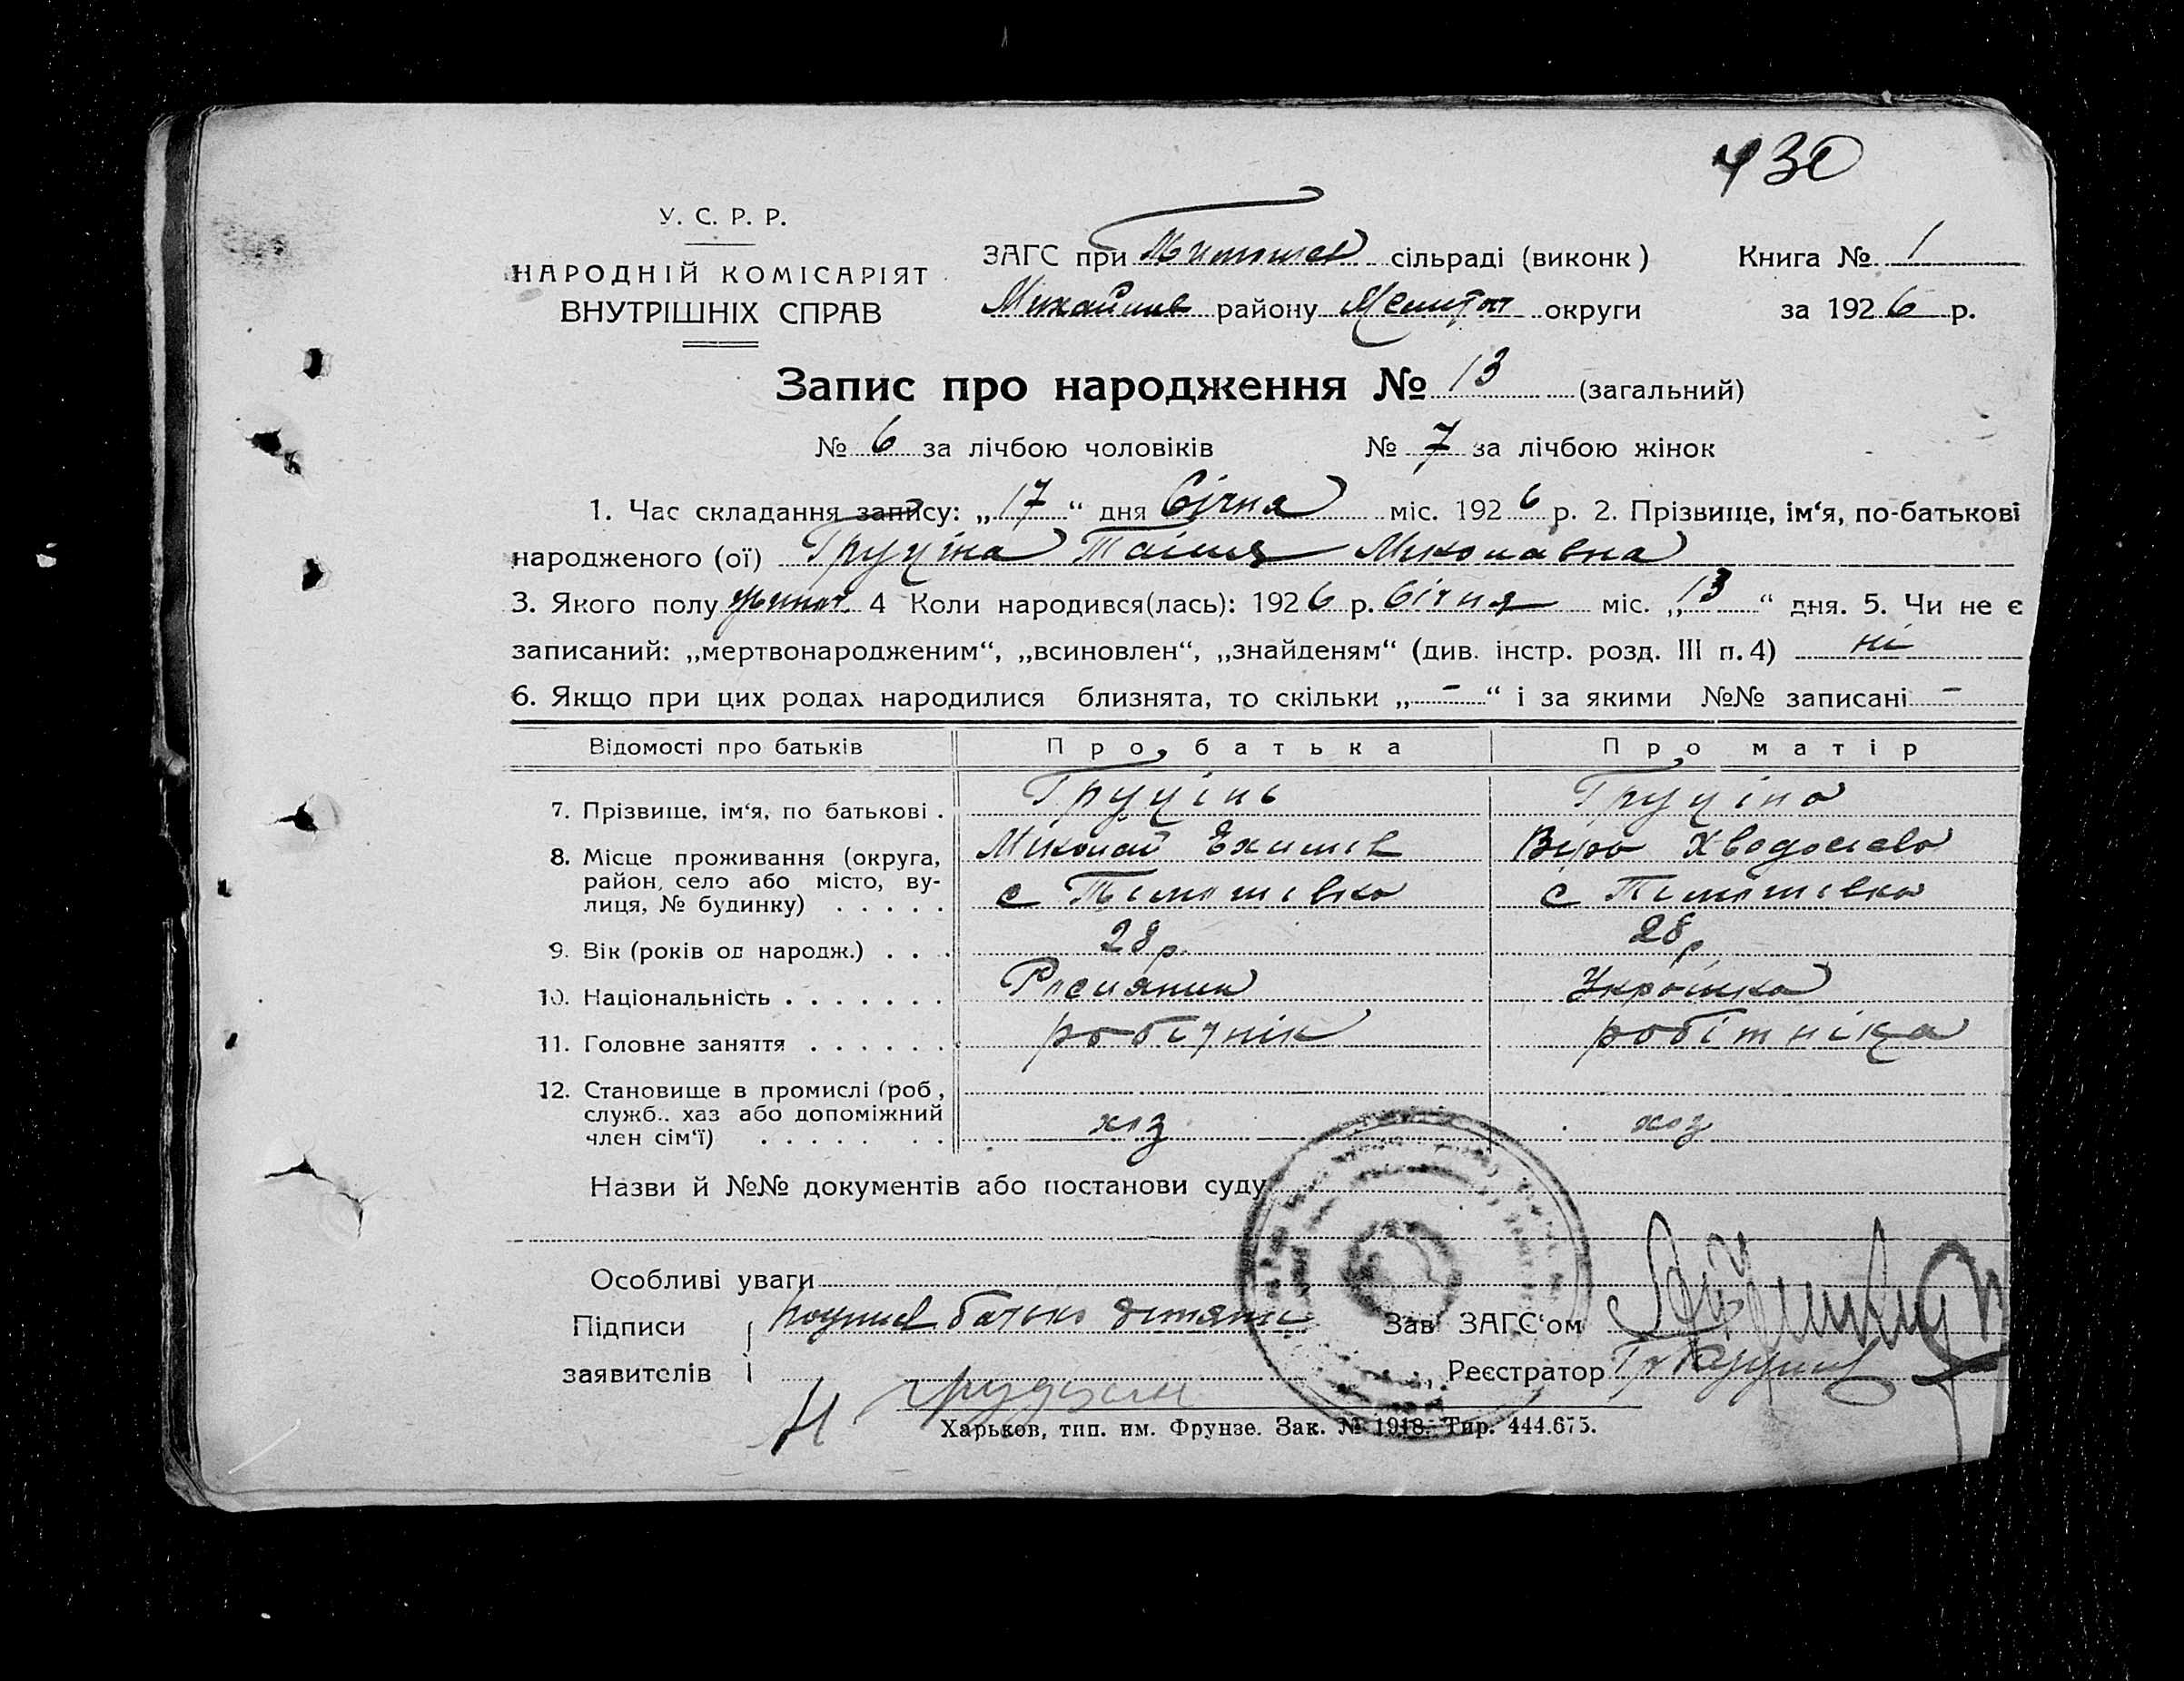 430
У. С. Р. Р.
НАРОДНІЙ КОМІСАРІЯТ
ВНУТРІШНІХ СПРАВ
ЗАГС при Тимошев сільраді (виконк)
Михайлів району Меліт округи
Книга № 1
за 1926 р.
Запис про народження № 13 (загальний)
№ 6 за лічбою чоловіків № 7 за лічбою жінок
1. Час складання запису: „17“ дня Січня міс. 1926 р. 2. Прізвище, ім‘я, по-батькові
народженого (ої) Груціна Таіся Миколавна
3. Якого полу жиноч. 4 Коли народився(лась): 1926 р. Січня міс. „13“ дня. 5. Чи не є
записаний: „мертвонародженим“, „всиновлен“, „знайденям“ (див. інстр. розд. III п. 4) ні
6. Якщо при цих родах народилися близнята, то скільки „-“ і за якими №№ записані -
Відомості про батьків Про батька Про матір
7. Прізвище, ім‘я, по батькові . Груцінь Груціна
8. Місце проживання (округа, район, село або місто, вулиця, № будинку) . . . . . Миколай с Тімошівка Віра с Тімошівка
9. Вік (років од народж.) . . . 28 р. 28 р
10. Національність . . . . . . . Росиянин Украінка
11. Головне заняття . . . . . . робітнік робітніца
12. Становище в промислі (роб, служб.. хаз або допоміжний член сім‘ї) . . . . . . . хоз хоз
Назви й №№ документів або постанови суду
Особливі уваги
Підписи батько дитяти Зав ЗАГС‘ом
заявителів Н Реєстратор
Харьков, тип. им. Фрунзе. Зак. № 1918. Тир. 444.675.